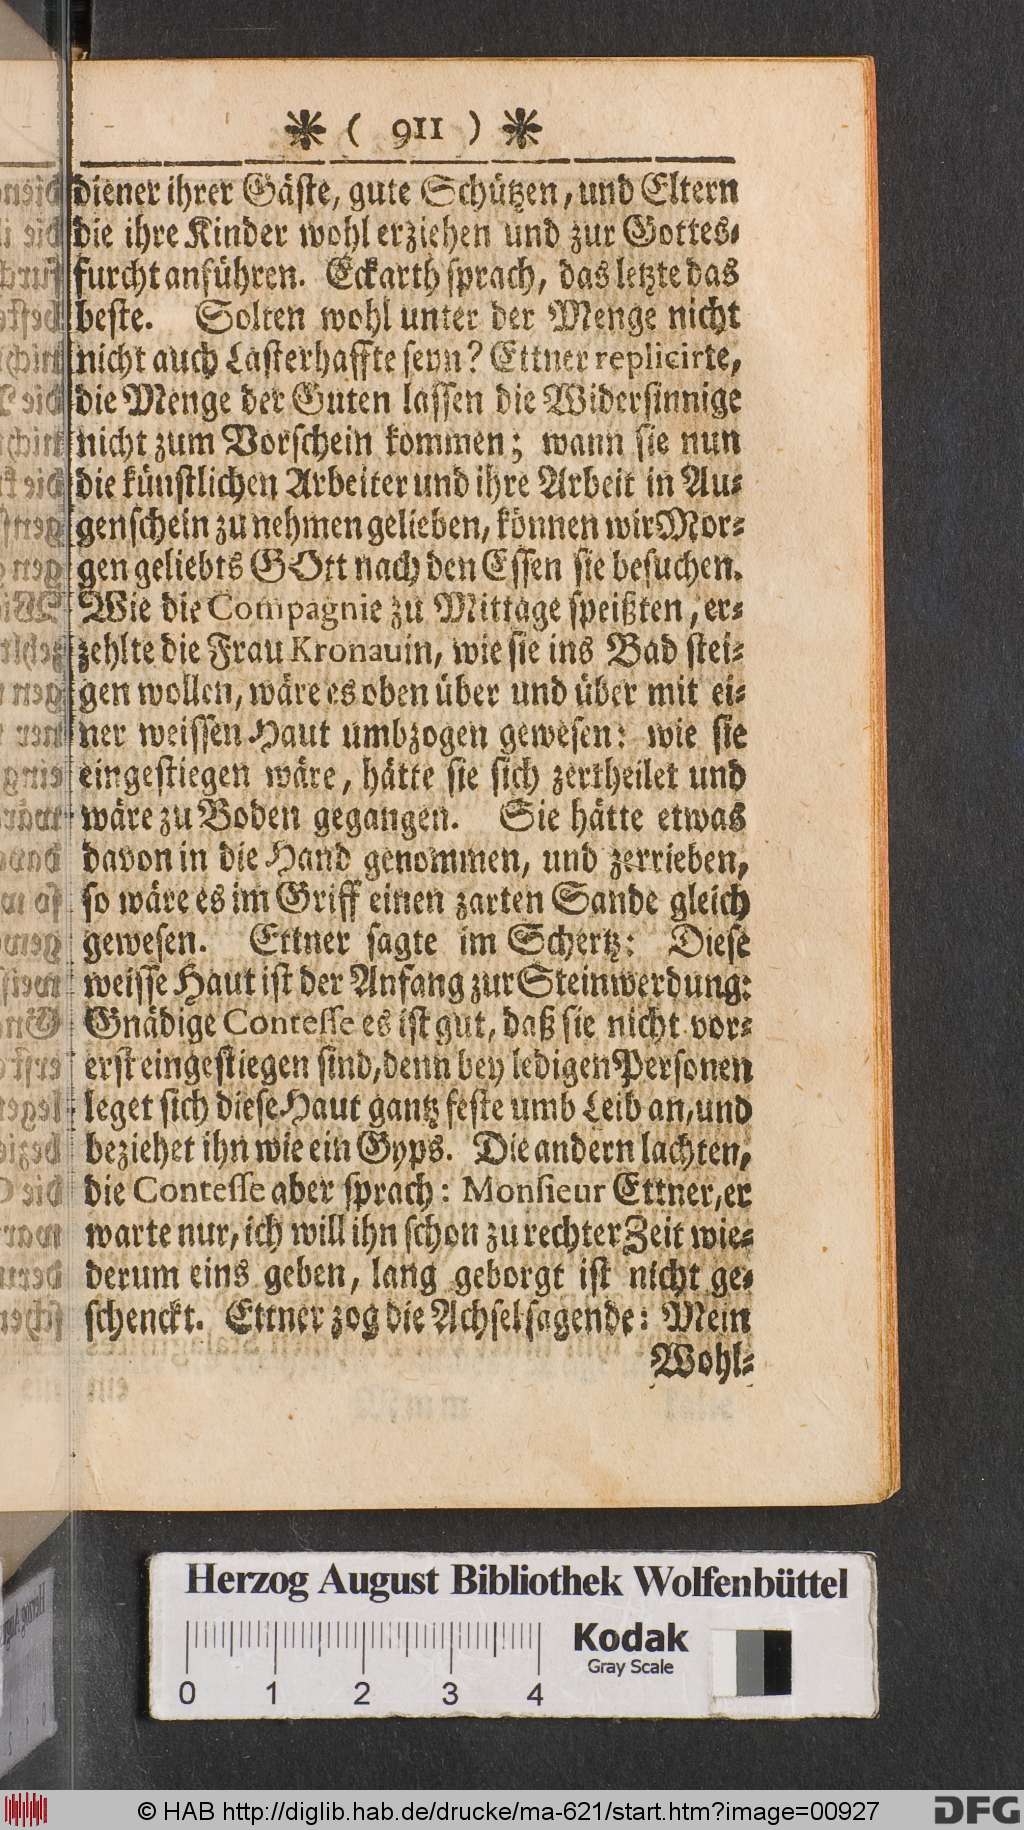 ❋ ( 911 ) ❋
diener ihrer Gäste, gute Schützen, und Eltern
die ihre Kinder wohl erziehen und zur Gottes-
furcht anführen. Eckarth sprach, das letzte das
beste. Solten wohl unter der Menge nicht
nicht auch Lasterhaffte seyn? Ettner replicirte,
die Menge der Guten lassen die Widersinnige
nicht zum Vorschein kommen; wann sie nun
die künstlichen Arbeiter und ihre Arbeit in Au-
genschein zu nehmen gelieben, können wir Mor-
gen geliebts GOtt nach den Essen sie besuchen.
Wie die Compagnie zu Mittage speißten, er-
zehlte die Frau Kronauin, wie sie ins Bad stei-
gen wollen, wäre es oben über und über mit ei-
ner weissen Haut umbzogen gewesen: wie sie
eingestiegen wäre, hätte sie sich zertheilet und
wäre zu Boden gegangen. Sie hätte etwas
davon in die Hand genommen, und zerrieben,
so wäre es im Griff einen zarten Sande gleich
gewesen. Ettner sagte im Schertz: Diese
weisse Haut ist der Anfang zur Steinwerdung:
Gnädige Contesse es ist gut, daß sie nicht vor-
erst eingestiegen sind, denn bey ledigen Personen
leget sich diese Haut gantz feste umb Leib an, und
beziehet ihn wie ein Gyps. Die andern lachten,
die Contesse aber sprach: Monsieur Ettner, er
warte nur, ich will ihn schon zu rechter Zeit wie-
derum eins geben, lang geborgt ist nicht ge-
schenckt. Ettner zog die Achsel sagende: Mein
Wohl-
Herzog August Bibliothek Wolfenbüttel
Kodak
Gray Scale
0 1 2 3 4
© HAB http://diglib.hab.de/drucke/ma-621/start.htm?image=00927
DFG